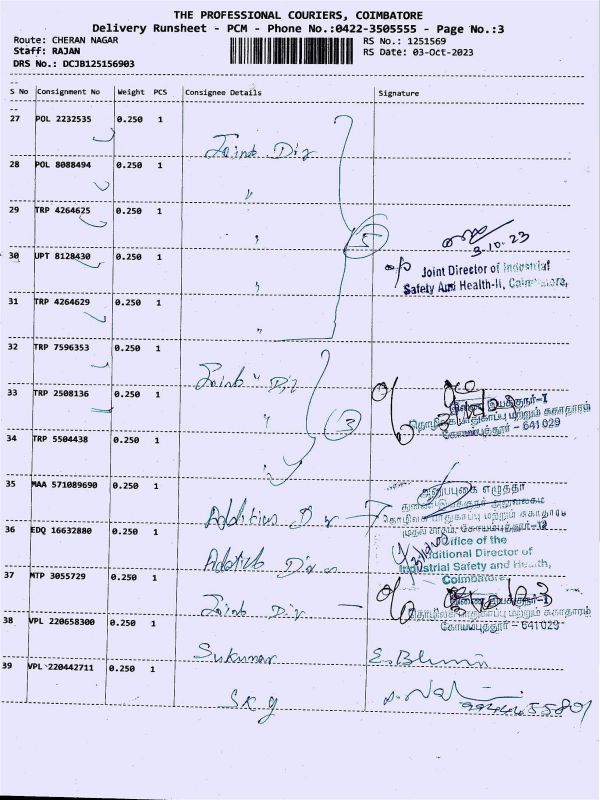 THE PROFESSIONAL COURIERS, COIMBATORE
Delivery Runsheet - PCM - Phone No.:0422-3505555 - Page No.:3
Route: CHERAN NAGAR
RS No.: 1251569
Staff: RAJAN
RS Date: 03-Oct-2023
DRS No.: DCJB125156903
S No Consignment No Weight PCS Consignee Details Signature
27 POL 2232535 0.250 1
Joint Dir
28 POL 8088494 0.250 1
"
29 TRP 4264625 0.250 1
"
5
3.10.23
30 UPT 8128430 0.250 1
"
Joint Director of Industrial
Safety And Health-II, Coimbatore,
31 TRP 4264629 0.250 1
"
32 TRP 7596353 0.250 1
Joint Dir
33 TRP 2508136 0.250 1
"
3
இணை இயக்குநர்-I
தொழிலக பாதுகாப்பு மற்றும் சுகாதாரம்
கோயம்புத்தூர் - 641029
34 TRP 5504438 0.250 1
"
35 MAA 571089690 0.250 1
Addition Dir
அனுப்புகை எழுத்தர்
36 EDQ 16632880 0.250 1
Additi Dir
Office of the
Additional Director of
Industrial Safety and Health,
Coimbatore
37 MTP 3055729 0.250 1
Joint Dir
இணை இயக்குநர்-I
தொழிலக பாதுகாப்பு மற்றும் சுகாதாரம்
கோயம்புத்தூர் - 641029
38 VPL 220658300 0.250 1
Sukumar
39 VPL 220442711 0.250 1
SKG